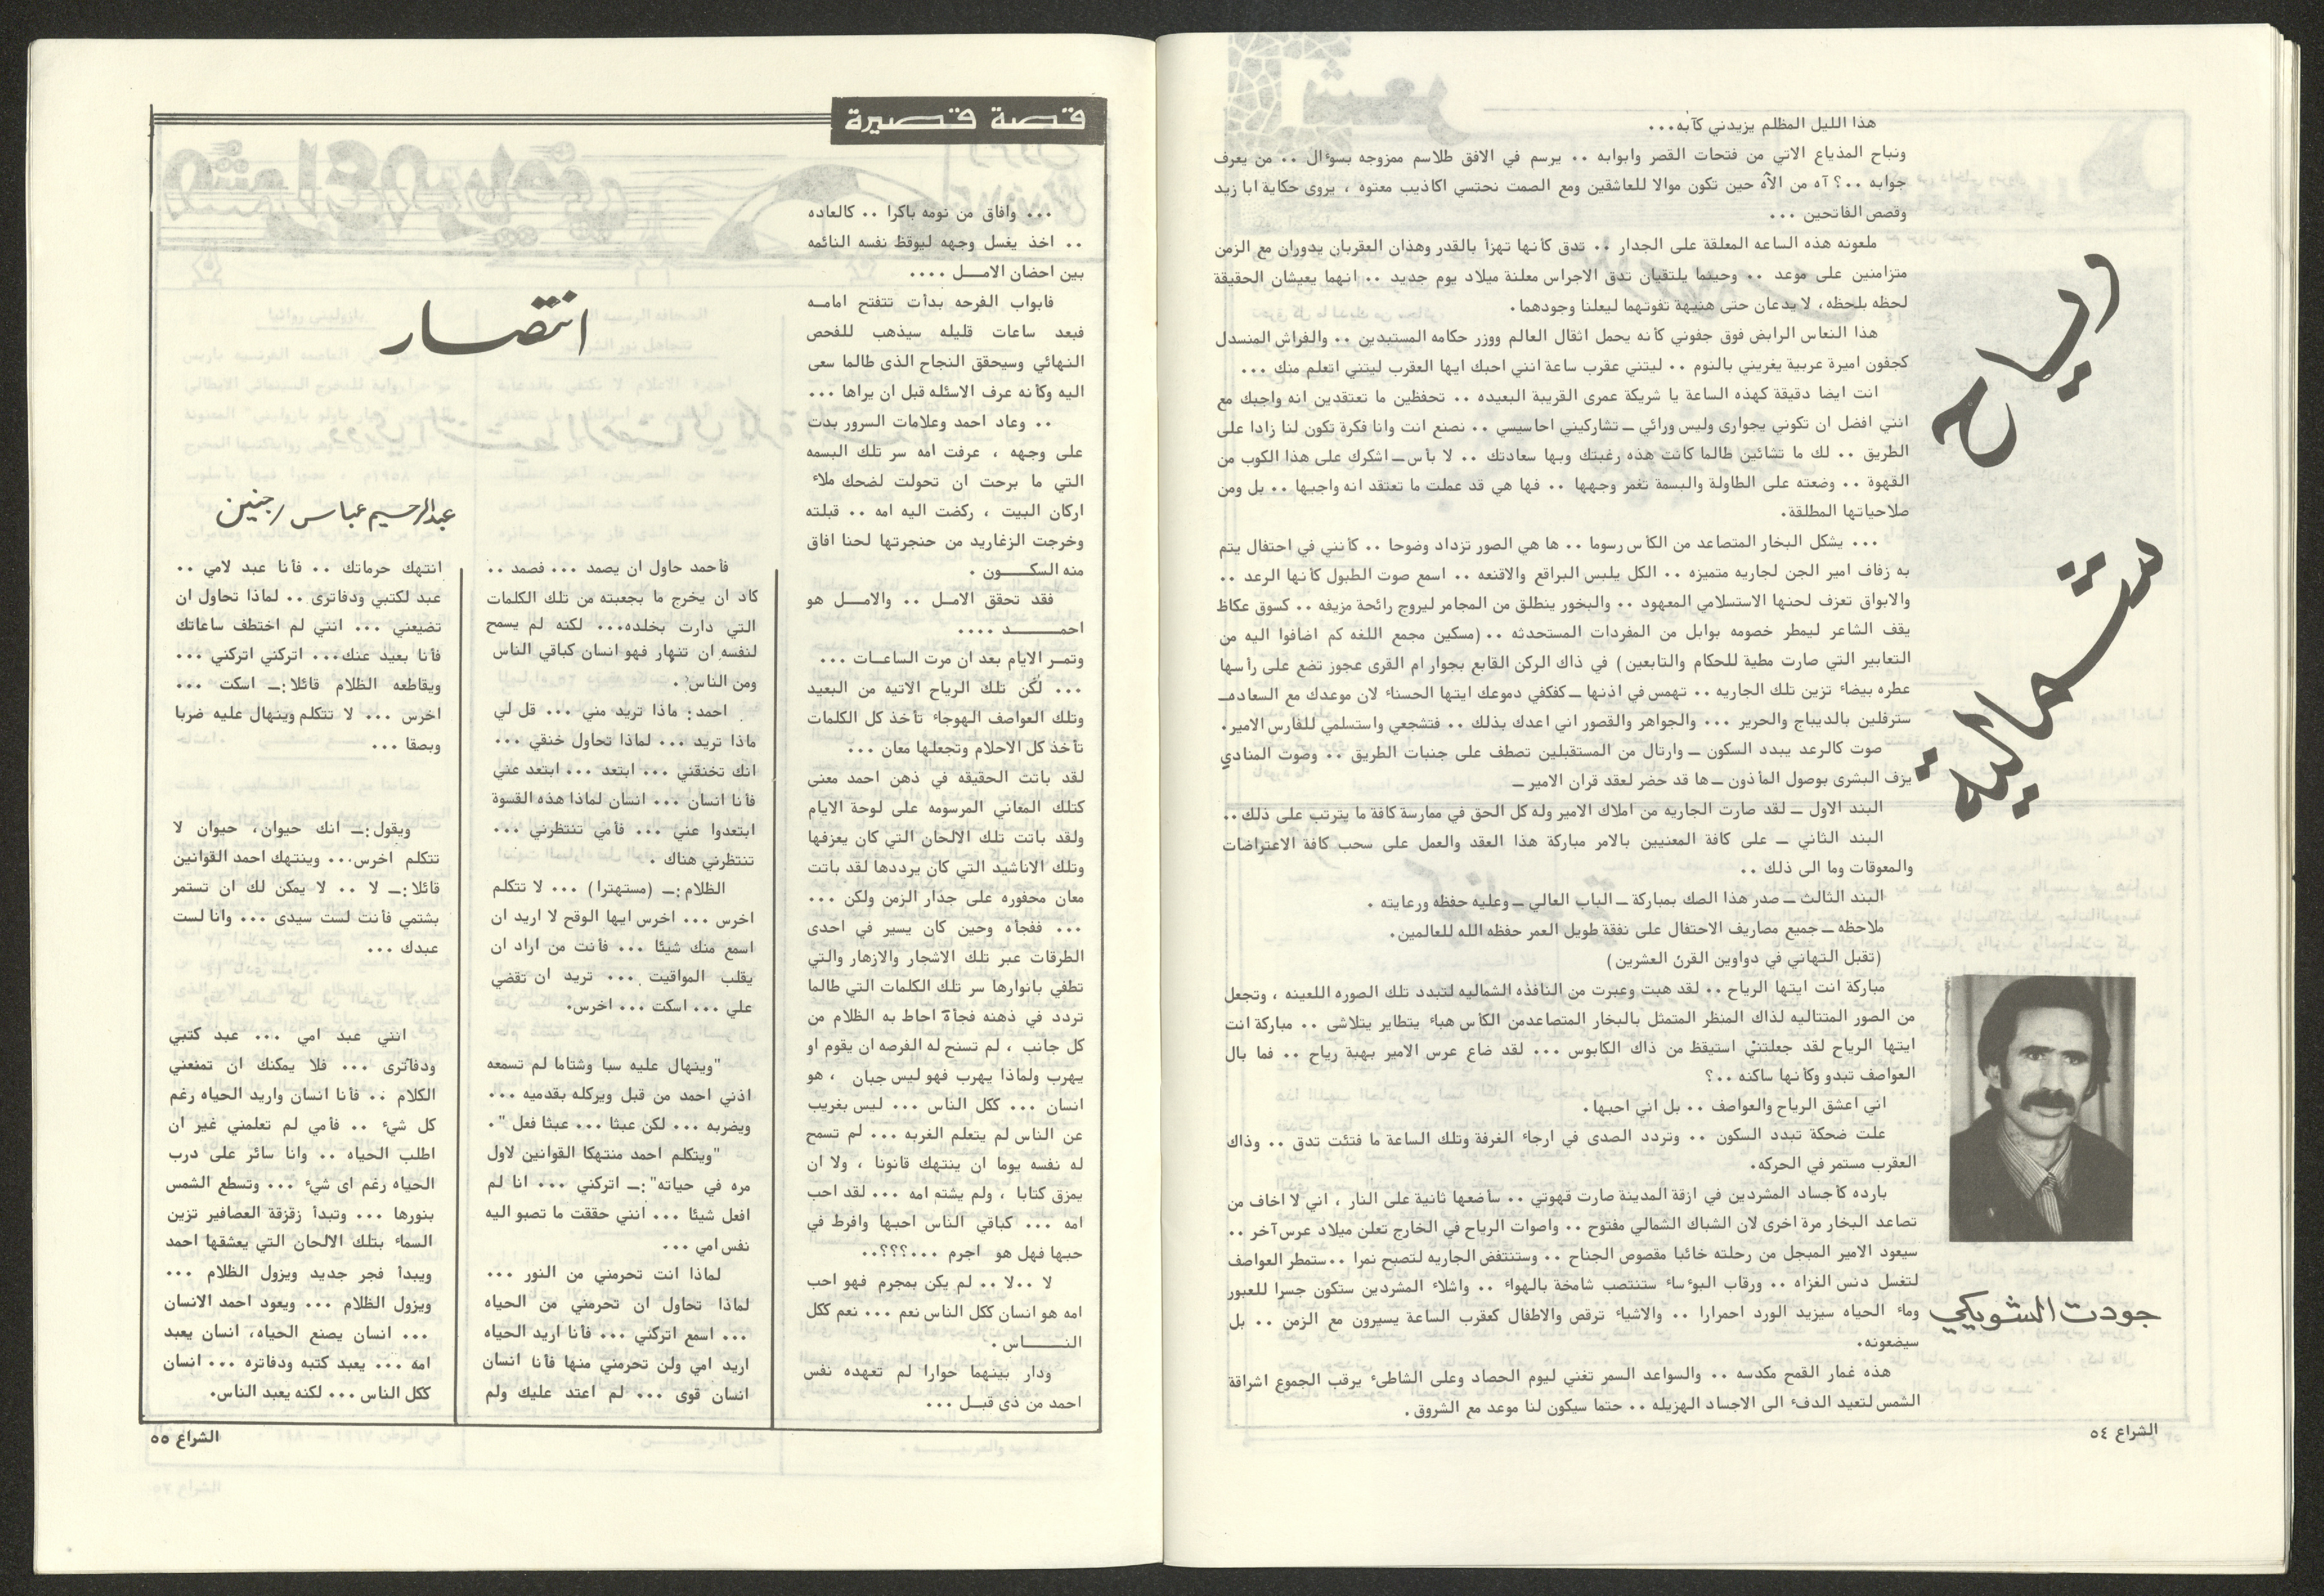 رياح
شمالية
جودت الشويكي
هذا الليل المظلم يزيدني كآبه...
ونباح المذياع الاتي من فتحات القصر وابوابه .. يرسم في الافق طلاسم ممزوجه بسوءال .. من يعرف
جوابه ..؟ آه من الآه حين تكون موالا للعاشقين ومع الصمت نحتسي اكاذيب معتوه ، يروى حكاية ابا زيد
وقصص الفاتحين ...
ملعونه هذه الساعه المعلقة على الجدار .. تدق كأنها تهزأ بالقدر وهذان العقربان يدوران مع الزمن
متزامنين على موعد .. وحينما يلتقيان تدق الاجراس معلنة ميلاد يوم جديد .. انهما يعيشان الحقيقة
لحظه بلحظه، لا يدعان حتى هنيهة تفوتهما ليعلنا وجودهما.
هذا النعاس الرابض فوق جفوني كأنه يحمل اثقال العالم ووزر حكامه المستبدين .. والفراش المنسدل
كجفون اميرة عربية يغريني بالنوم .. ليتني عقرب ساعة انني احبك ايها العقرب ليتني اتعلم منك ...
انت ايضا دقيقة كهذه الساعة يا شريكة عمرى القريبة البعيده .. تحفظين ما تعتقدين انه واجبك مع
انني افضل ان تكوني بجوارى وليس ورائي ــ تشاركيني احاسيسي .. نصنع انت وانا فكرة تكون لنا زادا على
الطريق .. لك ما تشائين طالما كانت هذه رغبتك وبها سعادتك .. لا بأس ــ اشكرك على هذا الكوب من
القهوة .. وضعته على الطاولة والبسمة تغمر وجهها .. فها هي قد عملت ما تعتقد انه واجبها .. بل ومن
صلاحياتها المطلقة.
... يشكل البخار المتصاعد من الكأس رسوما .. ها هي الصور تزداد وضوحا .. كأنني في احتفال يتم
به زفاف امير الجن لجاريه متميزه .. الكل يلبس البراقع والاقنعه .. اسمع صوت الطبول كأنها الرعد ..
والابواق تعزف لحنها الاستسلامي المعهود .. والبخور ينطلق من المجامر ليروج رائحة مزيفه .. كسوق عكاظ
يقف الشاعر ليمطر خصومه بوابل من المفردات المستحدثه .. (مسكين مجمع اللغه كم اضافوا اليه من
التعابير التي صارت مطية للحكام والتابعين) في ذاك الركن القابع بجوار ام القرى عجوز تضع على رأسها
عطره بيضاء تزين تلك الجاريه .. تهمس في اذنها ــ كفكفي دموعك ايتها الحسناء لان موعدك مع السعاده ــ
سترفلين بالديباج والحرير ... والجواهر والقصور اني اعدك بذلك .. فتشجعي واستسلمي للفارس الامير.
صوت كالرعد يبدد السكون ــ وارتال من المستقبلين تصطف على جنبات الطريق .. وصوت المنادي
يزف البشرى بوصول المأذون ــ ها قد حضر لعقد قران الامير ــ
البند الاول ــ لقد صارت الجاريه من املاك الامير وله كل الحق في ممارسة كافة ما يترتب على ذلك ..
البند الثاني ــ على كافة المعنيين بالامر مباركة هذا العقد والعمل على سحب كافة الاعتراضات
والمعوقات وما الى ذلك ..
البند الثالث ــ صدر هذا الصك بمباركة ــ الباب العالي ــ وعليه حفظه ورعايته .
ملاحظه ــ جميع مصاريف الاحتفال على نفقة طويل العمر حفظه الله للعالمين.
(تقبل التهاني في دواوين القرن العشرين)
مباركة انت ايتها الرياح .. لقد هبت وعبرت من النافذه الشماليه لتبدد تلك الصوره اللعينه ، وتجعل
من الصور المتتاليه لذاك المنظر المتمثل بالبخار المتصاعدمن الكأس هباء يتطاير يتلاشى .. مباركة انت
ايتها الرياح لقد جعلتني استيقظ من ذاك الكابوس ... لقد ضاع عرس الامير بهبة رياح .. فما بال
العواصف تبدو وكأنها ساكنه ..؟
اني اعشق الرياح والعواصف .. بل اني احبها.
علت ضحكة تبدد السكون .. وتردد الصدى في ارجاء الغرفة وتلك الساعة ما فتئت تدق .. وذاك
العقرب مستمر في الحركه.
بارده كأجساد المشردين في ازقة المدينة صارت قهوتي .. سأضعها ثانية على النار ، اني لا اخاف من
تصاعد البخار مرة اخرى لان الشباك الشمالي مفتوح .. واصوات الرياح في الخارج تعلن ميلاد عرس آخر ..
سيعود الامير المبجل من رحلته خائبا مقصوص الجناح .. وستنتفض الجاريه لتصبح نمرا ..ستمطر العواصف
لتغسل دنس الغزاه .. ورقاب البوءساء ستنتصب شامخة بالهواء .. واشلاء المشردين ستكون جسرا للعبور
وماء الحياه سيزيد الورد احمرارا .. والاشياء ترقص والاطفال كعقرب الساعة يسيرون مع الزمن .. بل
سيضعونه.
هذه غمار القمح مكدسه .. والسواعد السمر تغني ليوم الحصاد وعلى الشاطىء يرقب الجموع اشراقة
الشمس لتعيد الدفء الى الاجساد الهزيله .. حتما سيكون لنا موعد مع الشروق.
الشراع ٥٤
قصة قصيرة
انتصار
عبدالرحيم عباس / جنين
... وافاق من نومه باكرا .. كالعاده
.. اخذ يغسل وجهه ليوقظ نفسه النائمه
بين احضان الامـــل ....
فابواب الفرحه بدأت تتفتح امامـه
فبعد ساعات قليله سيذهب للفحص
النهائي وسيحقق النجاح الذى طالما سعى
اليه وكأنه عرف الاسئله قبل ان يراها ...
.. وعاد احمد وعلامات السرور بدت
على وجهه ، عرفت امه سر تلك البسمه
التي ما برحت ان تحولت لضحك ملاء
اركان البيت ، ركضت اليه امه .. قبلته
وخرجت الزغاريد من حنجرتها لحنا افاق
منه السكـــــون .
فقد تحقق الامـل .. والامـــل هو
احمـــــــد ....
وتمـر الايام بعد ان مرت الساعـات ...
... لكن تلك الرياح الاتيه من البعيد
وتلك العواصف الهوجاء تأخذ كل الكلمات
تأخذ كل الاحلام وتجعلها معان ...
لقد باتت الحقيقه في ذهن احمد معنى
كتلك المعاني المرسومه على لوحة الايام
ولقد باتت تلك الالحان التي كان يعزفها
وتلك الاناشيد التي كان يرددها لقد باتت
معان محفوره على جدار الزمن ولكن ...
... ففجأه وحين كان يسير في احدى
الطرقات عبر تلك الاشجار والازهار والتي
تطفي بانوارها سر تلك الكلمات التي طالما
تردد في ذهنه فجأة احاط به الظلام من
كل جانب ، لم تسنح له الفرصه ان يقوم او
يهرب ولماذا يهرب فهو ليس جبان ، هو
انسان ... ككل الناس ... ليس بغريب
عن الناس لم يتعلم الغربه ... لم تسمح
له نفسه يوما ان ينتهك قانونا ، ولا ان
يمزق كتابا ، ولم يشتم امه ... لقد احب
امه ... كباقي الناس احبها وافرط في
حبها فهل هو اجرم ...؟؟؟..
لا ..لا .. لم يكن بمجرم فهو احب
امه هو انسان ككل الناس نعم ... نعم ككل
النـــــاس .
ودار بينهما حوارا لم تعهده نفس
احمد من ذى قبـــل ...
فأحمد حاول ان يصمد ... فصمد ..
كاد ان يخرج ما بجعبته من تلك الكلمات
التي دارت بخلده... لكنه لم يسمح
لنفسه ان تنهار فهو انسان كباقي الناس
ومن الناس .
احمد: ماذا تريد مني ... قل لي
ماذا تريد ... لماذا تحاول خنقي ...
انك تخنقني ... ابتعد ... ابتعد عني
فأنا انسان ... انسان لماذا هذه القسوة
ابتعدوا عني ... فأمي تنتظرني ...
تنتظرني هناك .
الظلام :ــ (مستهترا) ... لا تتكلم
اخرس ... اخرس ايها الوقح لا اريد ان
اسمع منك شيئا ... فأنت من اراد ان
يقلب المواقيت ... تريد ان تقضي
علي ... اسكت ... اخرس.
"وينهال عليه سبا وشتاما لم تسمعه
اذني احمد من قبل ويركله بقدميه ...
ويضربه ... لكن عبثا ... عبثا فعل".
"ويتكلم احمد منتهكا القوانين لاول
مره في حياته":ــ اتركني ... انا لم
افعل شيئا ... انني حققت ما تصبو اليه
نفس امي ...
لماذا انت تحرمني من النور ...
لماذا تحاول ان تحرمني من الحياه
... اسمع اتركني ... فأنا اريد الحياه
اريد امي ولن تحرمني منها فأنا انسان
انسان قوى ... لم اعتد عليك ولم
انتهك حرماتك .. فأنا عبد لامي ..
عبد لكتبي ودفاترى .. لماذا تحاول ان
تضيعني ... انني لم اختطف ساعاتك
فأنا بعيد عنك... اتركني اتركني ...
ويقاطعه الظلام قائلا:ــ اسكت ...
اخرس ... لا تتكلم وينهال عليه ضربا
وبصقا ...
ويقول:ــ انك حيوان، حيوان لا
تتكلم اخرس... وينتهك احمد القوانين
قائلا:ــ لا .. لا يمكن لك ان تستمر
بشتمي فأنت لست سيدى ... وانا لست
عبدك ...
انني عبد امي ... عبد كتبي
ودفاترى ... فلا يمكنك ان تمنعني
الكلام .. فأنا انسان واريد الحياه رغم
كل شيء .. فأمي لم تعلمني غير ان
اطلب الحياه .. وانا سائر على درب
الحياه رغم اى شيء ... وتسطع الشمس
بنورها ... وتبدأ زقزقة العصافير تزين
السماء بتلك الالحان التي يعشقها احمد
ويبدأ فجر جديد ويزول الظلام ...
ويزول الظلام ... ويعود احمد الانسان
... انسان يصنع الحياه، انسان يعبد
امه ... يعبد كتبه ودفاتره ... انسان
ككل الناس ... لكنه يعبد الناس.
الشراع ٥٥